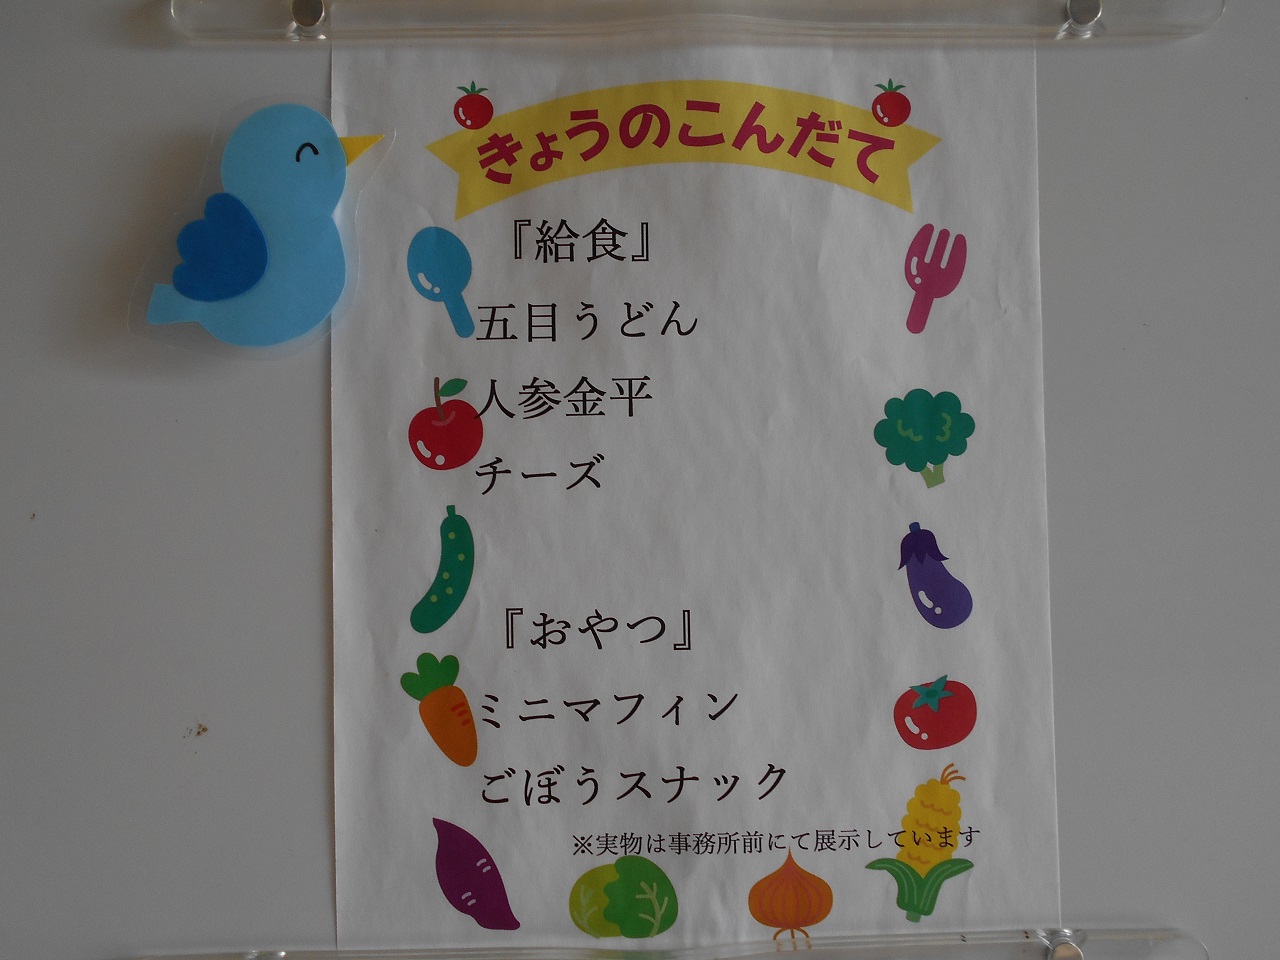 きょうのこんだて
『給食』
五目うどん
人参金平
チーズ
『おやつ』
ミニマフィン
ごぼうスナック
※実物は事務所前にて展示しています